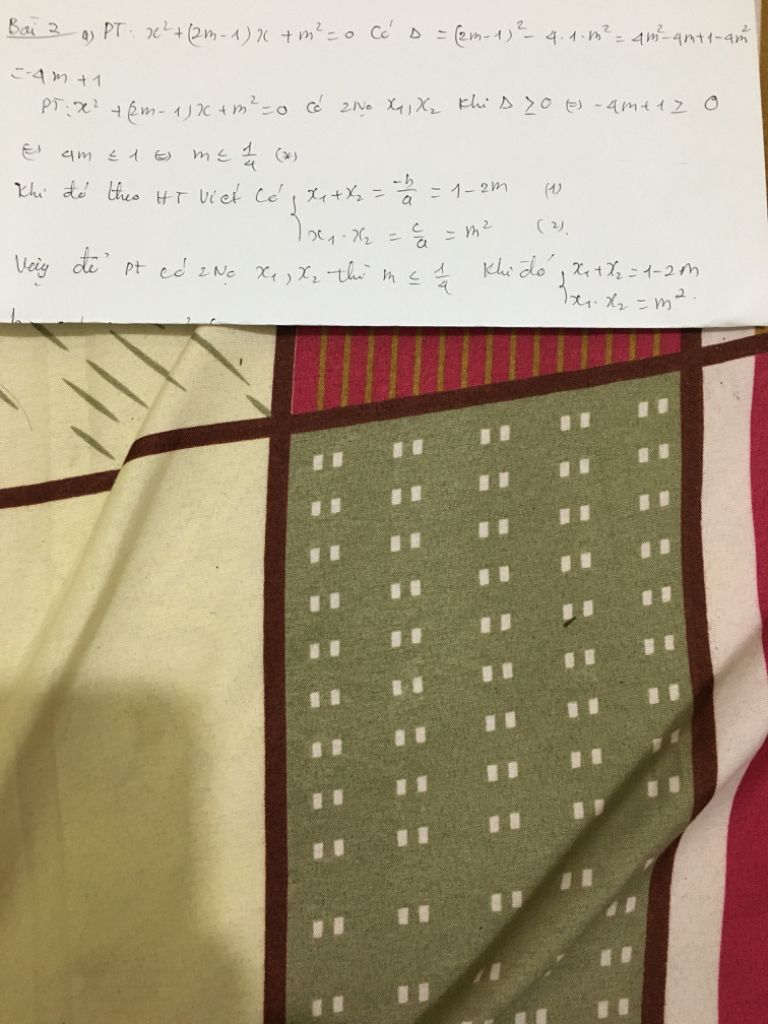 Bài 3 a) PT: x² + (2m-1)x + m² = 0 Có Δ = (2m-1)² - 4.1.m² = 4m²-4m+1-4m²
= -4m+1
PT: x² + (2m-1)x + m² = 0 có 2No x₁, x₂ khi Δ ≥ 0 ⇔ -4m+1 ≥ 0
⇔ 4m ≤ 1 ⇔ m ≤ 1/4 (*)
Khi đó theo HT Viét Có { x₁+x₂ = -b/a = 1-2m (1)
x₁.x₂ = c/a = m² (2).
Vậy để PT có 2No x₁, x₂ thì m ≤ 1/4 Khi đó { x₁+x₂ = 1-2m
x₁.x₂ = m².